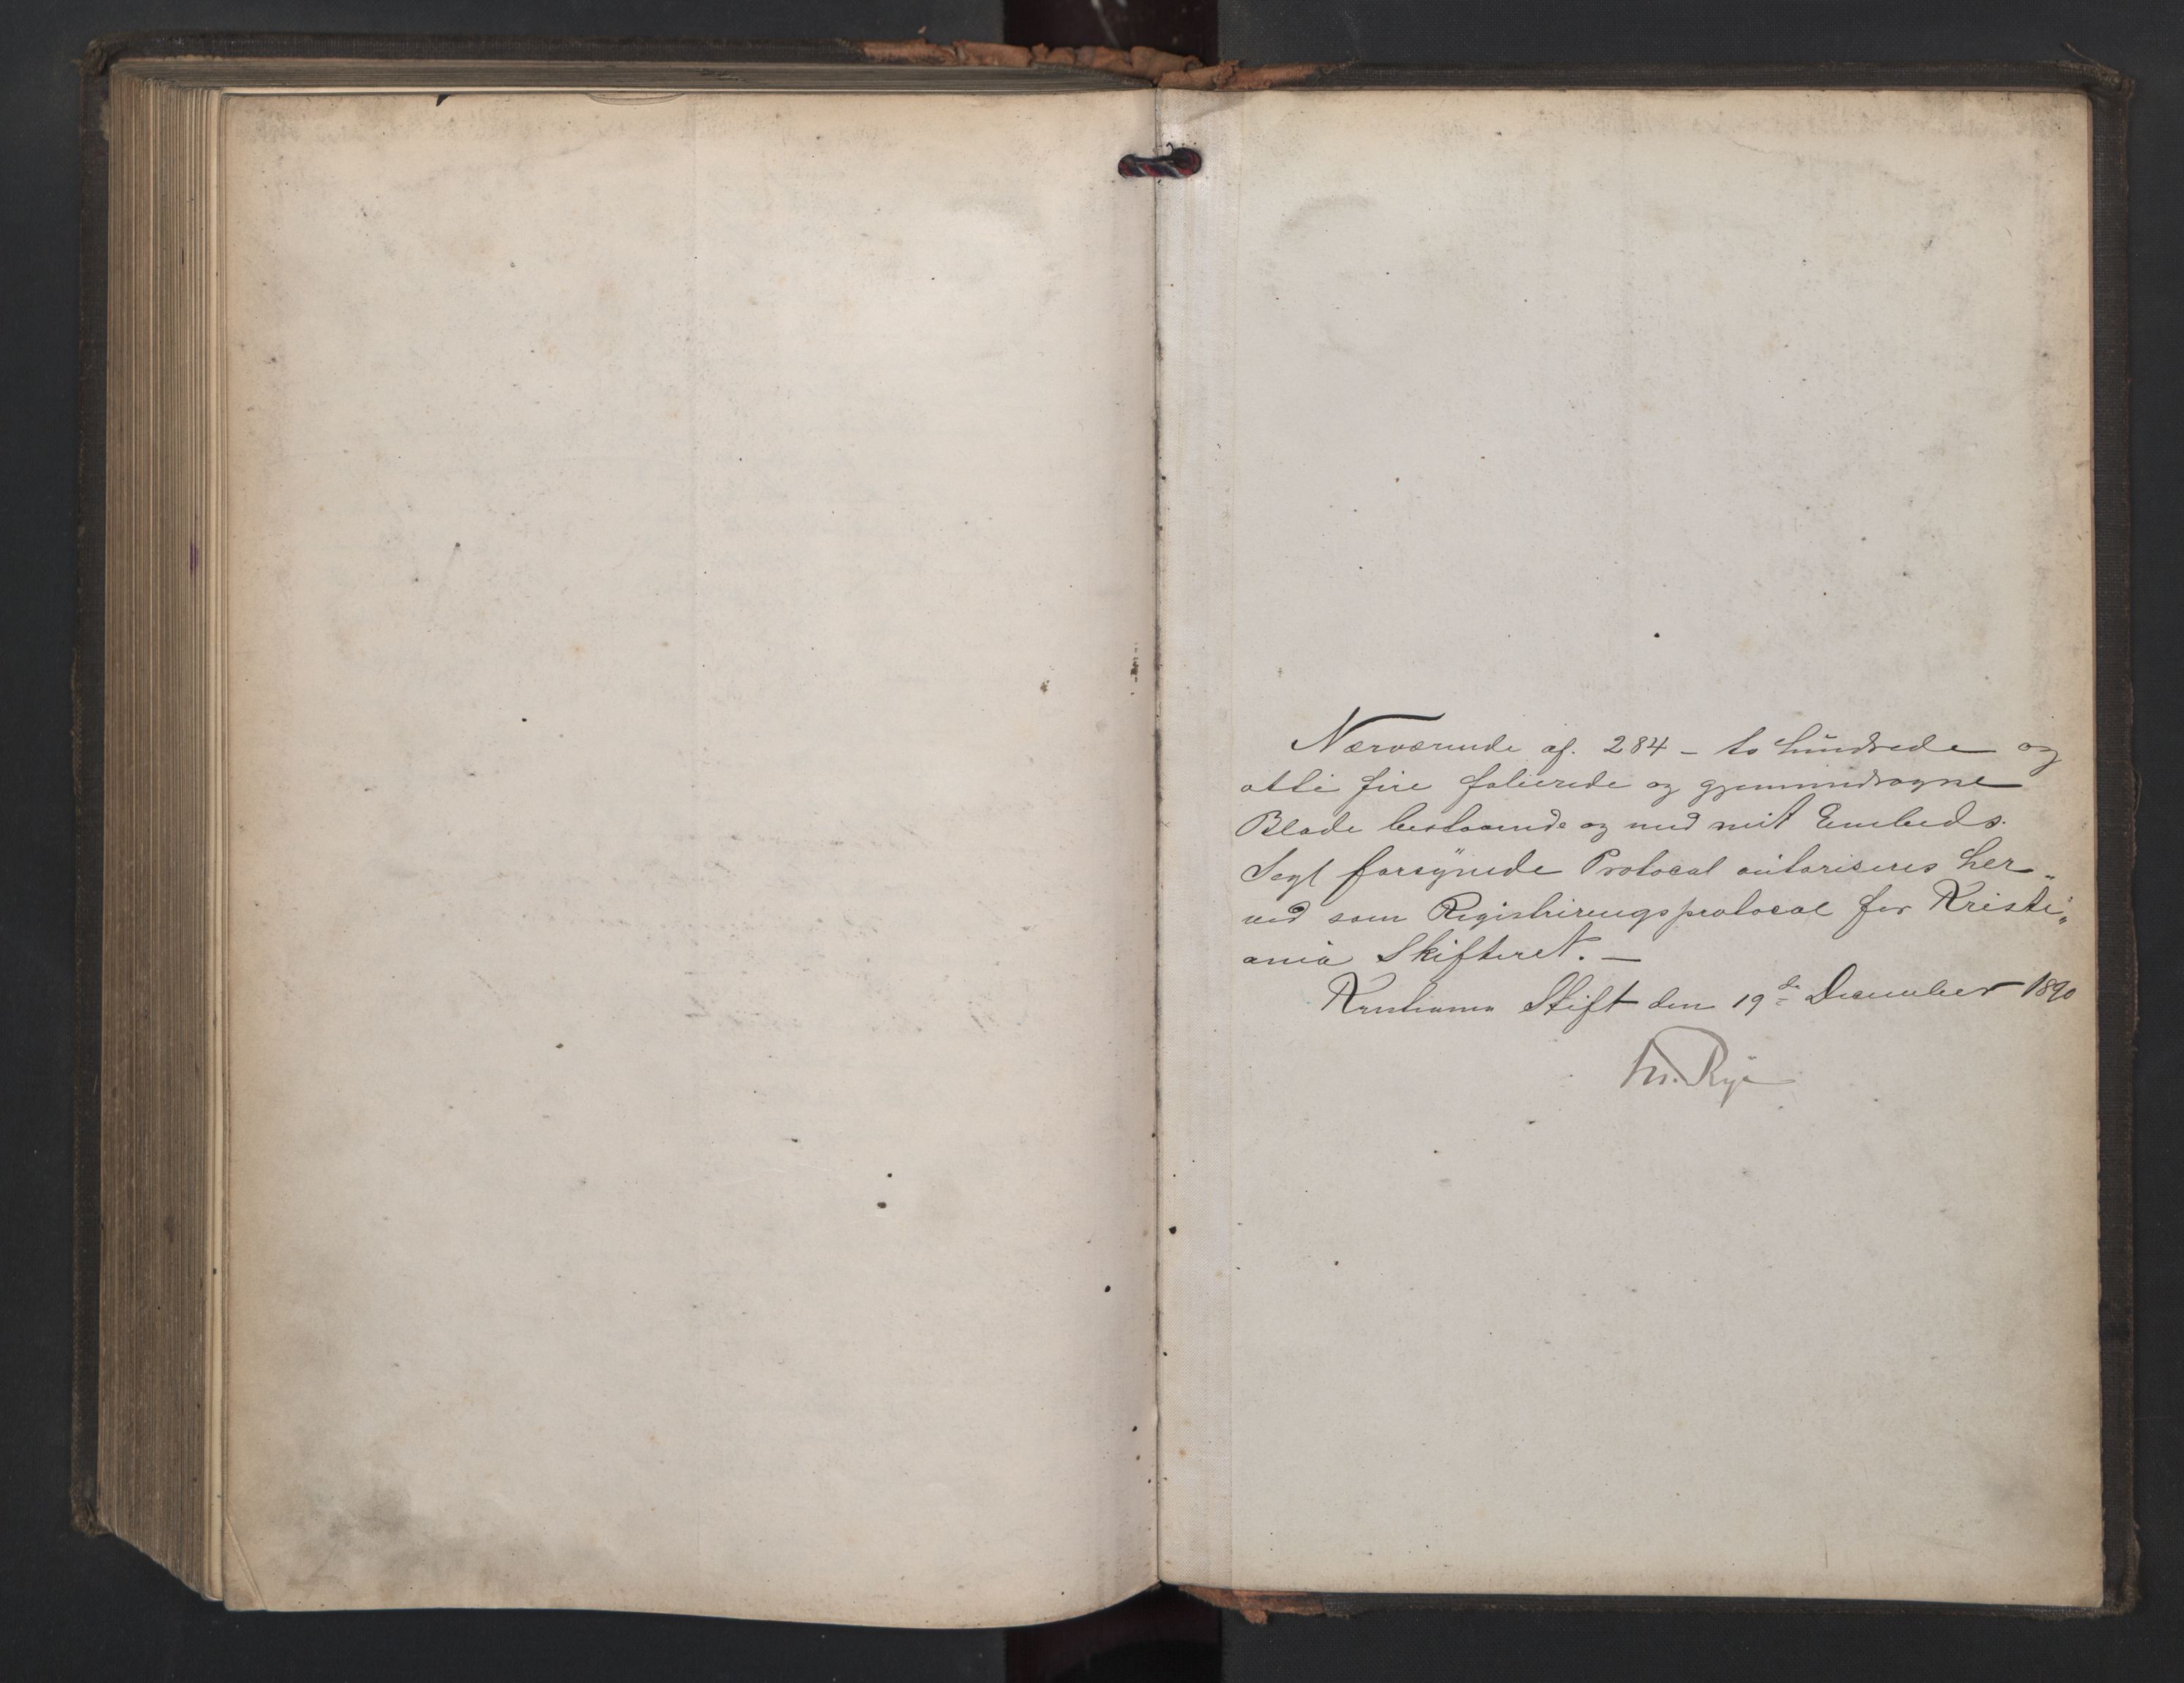 Nærværende af. 284 – to hundrede og
otti fire folierede og gjennemdragne
Blade bestaaende og med mit Embeds.
Segl forsynede Protocol autoriseres her„
ved som Registreringsprotocol for Kristi„
ania Skifteret. —
Kristiania Skift den 19de December 1890
Rye